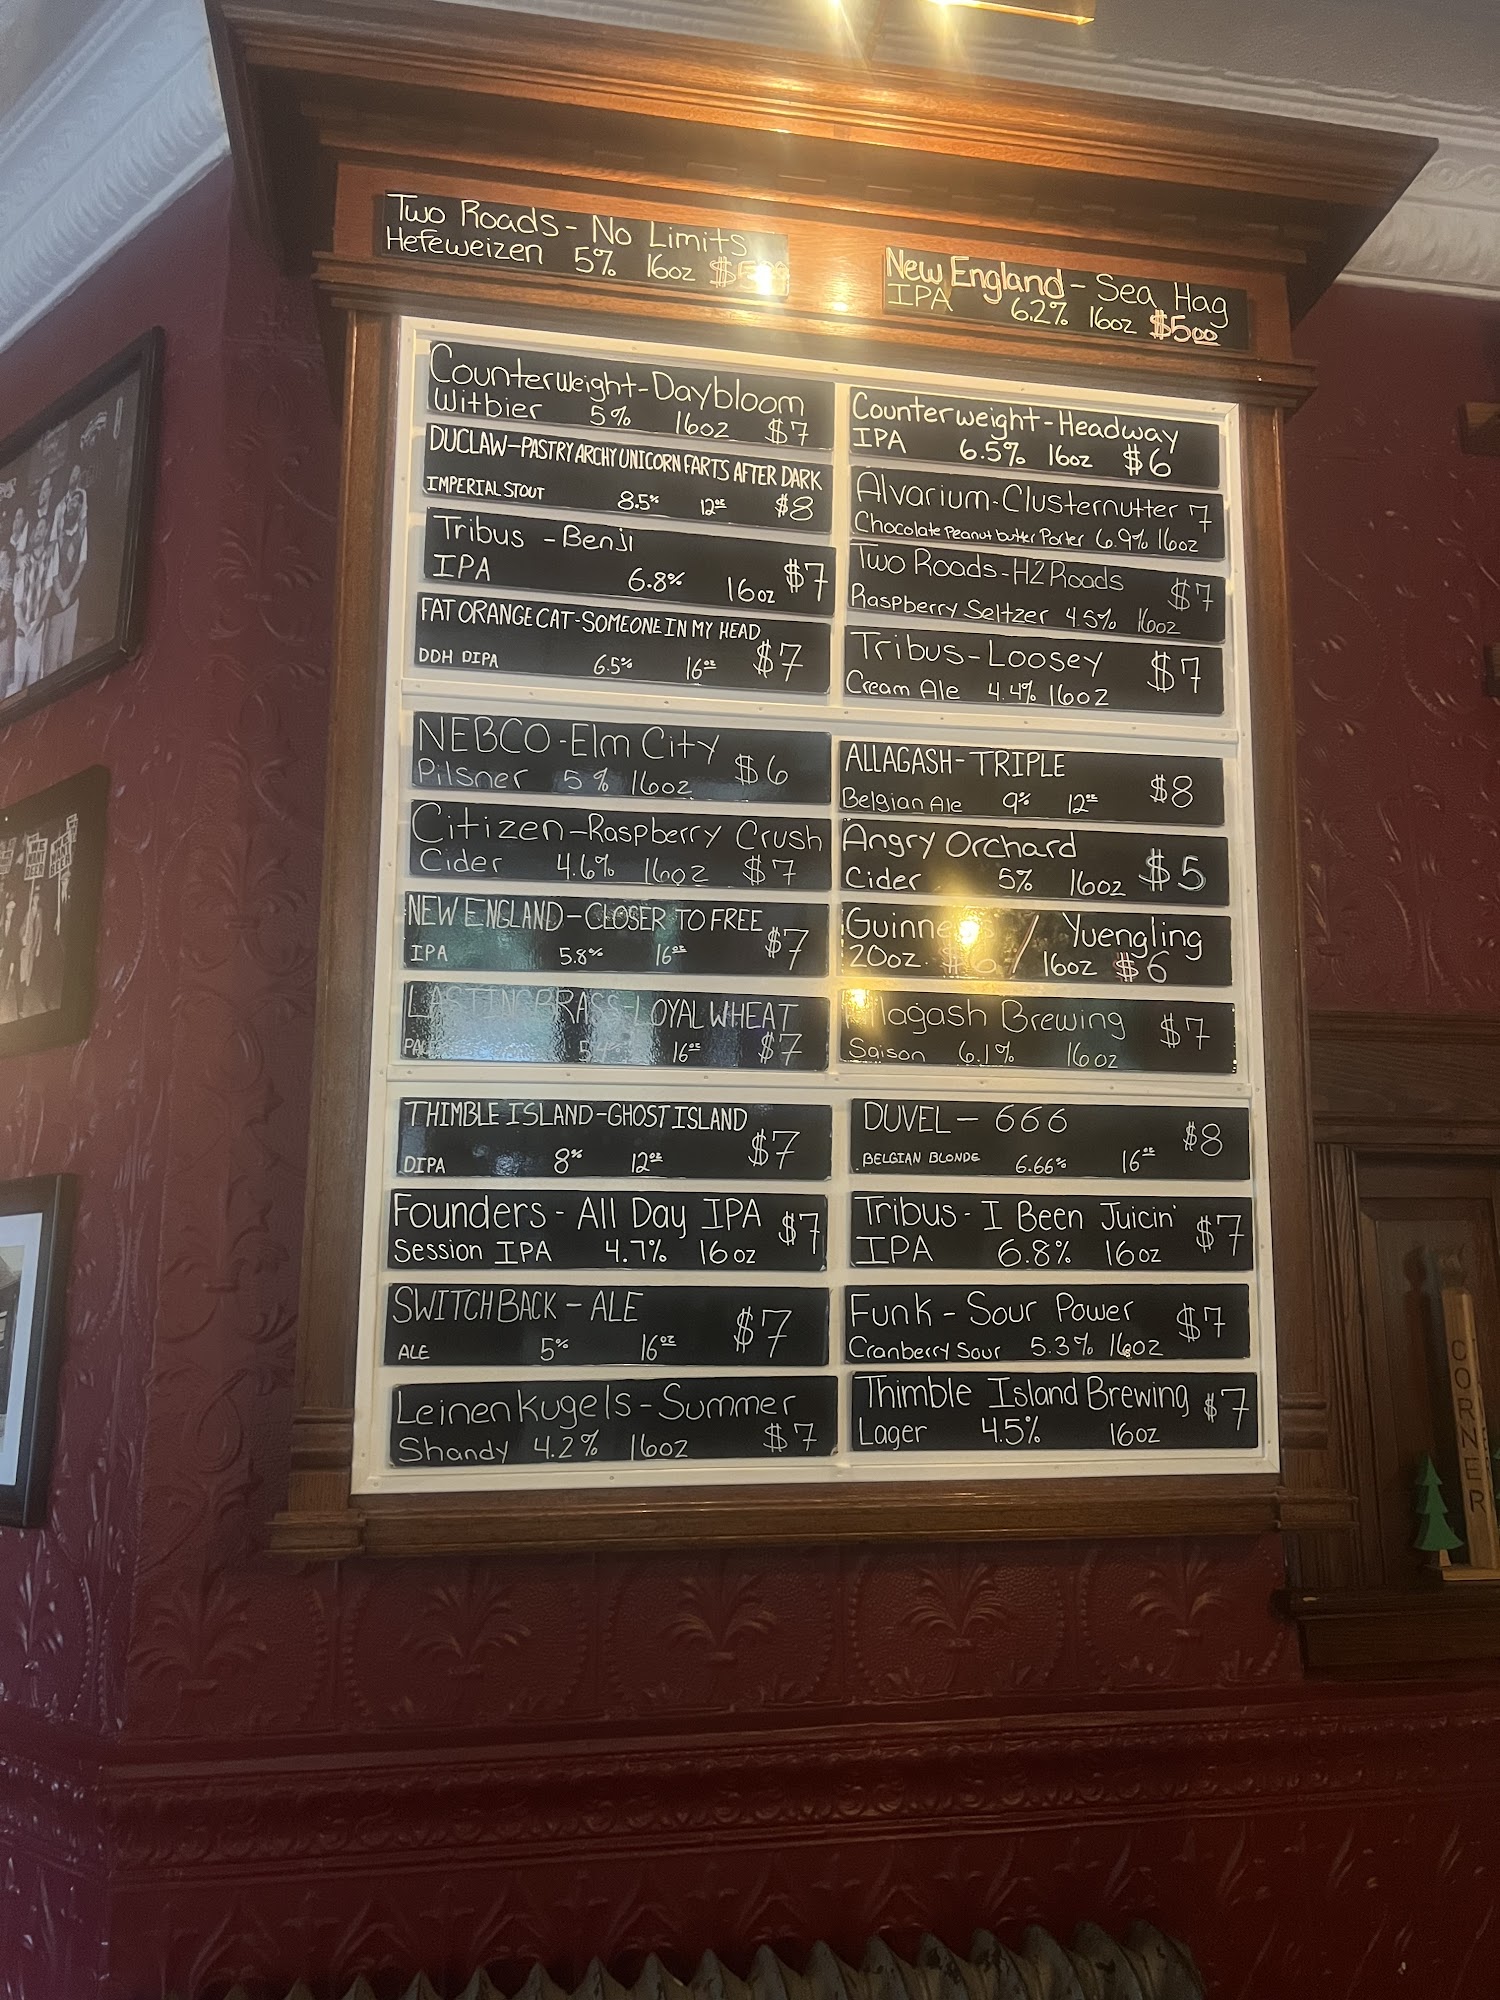 Two Roads - No Limits
Hefeweizen 5% 16oz
New England - Sea Hag
IPA 6.2% 16oz $500
Counterweight - Daybloom
Witbier 5% 16oz $7
DUCLAW - PASTRYARCHY UNICORN FARTS AFTER DARK
IMPERIAL STOUT 8.5% 12oz $8
Tribus - Benji
IPA 6.8% 16oz $7
FAT ORANGE CAT - SOMEONE IN MY HEAD
DDH DIPA 6.5% 16oz $7
Counterweight - Headway
IPA 6.5% 16oz $6
Alvarium - Clusternutter 7
Chocolate Peanut butter Porter 6.9% 16oz
Two Roads - H2Roads $7
Raspberry Seltzer 4.5% 16oz
Tribus - Loosey $7
Cream Ale 4.4% 16oz
NEBCO - Elm City $6
Pilsner 5% 16oz
Citizen - Raspberry Crush
Cider 4.6% 16oz $7
NEW ENGLAND - CLOSER TO FREE
IPA 5.8% 16oz $7
LASTING BRASS - LOYAL WHEAT
16oz $7
ALLAGASH - TRIPLE $8
Belgian Ale 9% 12oz
Angry Orchard
Cider 5% 16oz $5
Guinness / Yuengling
20oz $6 / 16oz $6
Allagash Brewing $7
Saison 6.1% 16oz
THIMBLE ISLAND - GHOST ISLAND
DIPA 8% 12oz $7
Founders - All Day IPA $7
Session IPA 4.7% 16oz
SWITCHBACK - ALE $7
ALE 5% 16oz
Leinenkugels - Summer
Shandy 4.2% 16oz $7
DUVEL - 666 $8
BELGIAN BLONDE 6.66% 16oz
Tribus - I Been Juicin' $7
IPA 6.8% 16oz
Funk - Sour Power $7
Cranberry Sour 5.3% 16oz
Thimble Island Brewing $7
Lager 4.5% 16oz
CORNER